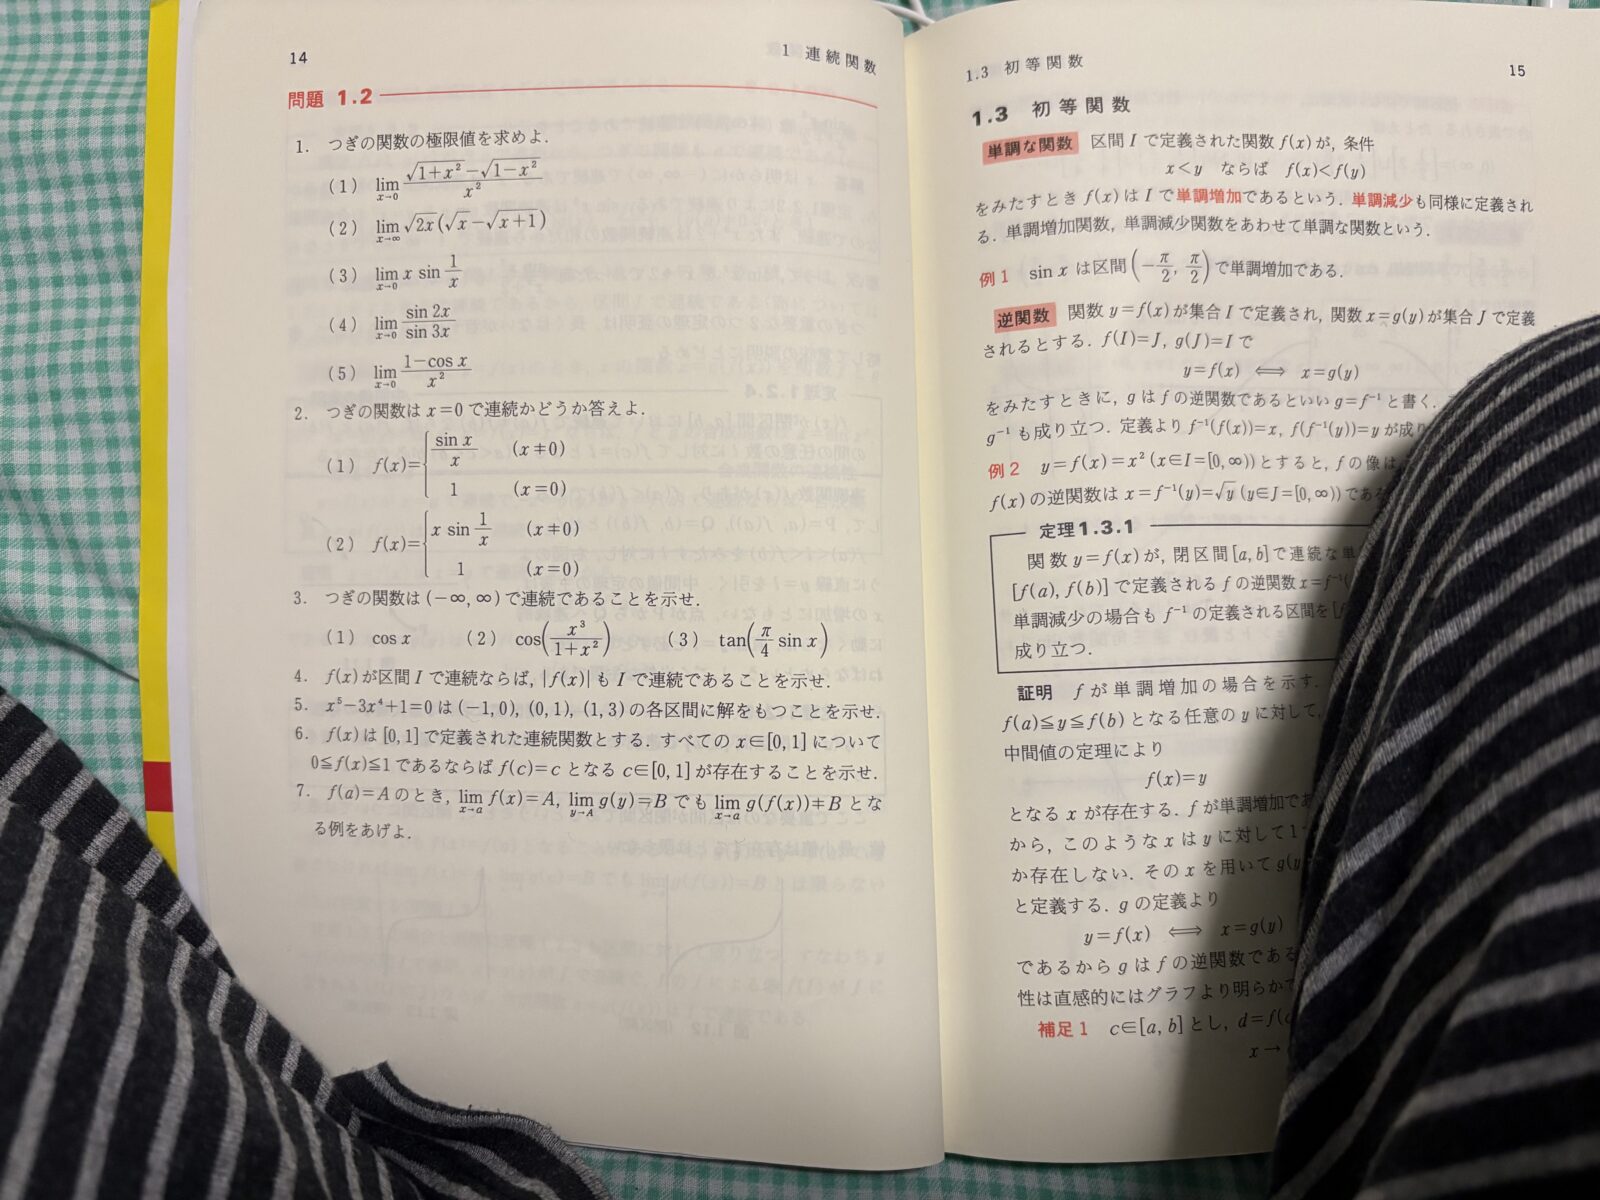 14
1 連続関数
問題 1.2
1. つぎの関数の極限値を求めよ.
(1) lim_{x→0} (√(1+x²)−√(1−x²))/x²
(2) lim_{x→∞} √(2x)(√x−√(x+1))
(3) lim_{x→0} x sin 1/x
(4) lim_{x→0} sin 2x/sin 3x
(5) lim_{x→0} (1−cos x)/x²
2. つぎの関数は x=0 で連続かどうか答えよ.
(1) f(x)={ sin x/x (x≠0)
1 (x=0)
(2) f(x)={ x sin 1/x (x≠0)
1 (x=0)
3. つぎの関数は (−∞, ∞) で連続であることを示せ.
(1) cos x (2) cos(x³/(1+x²)) (3) tan(π/4 sin x)
4. f(x) が区間 I で連続ならば, |f(x)| も I で連続であることを示せ.
5. x⁵−3x⁴+1=0 は (−1, 0), (0, 1), (1, 3) の各区間に解をもつことを示せ.
6. f(x) は [0, 1] で定義された連続関数とする. すべての x∈[0, 1] について
0≦f(x)≦1 であるならば f(c)=c となる c∈[0, 1] が存在することを示せ.
7. f(a)=A のとき, lim_{x→a} f(x)=A, lim_{y→A} g(y)=B でも lim_{x→a} g(f(x))≠B とな
る例をあげよ.
1.3 初等関数
15
1.3 初等関数
単調な関数 区間 I で定義された関数 f(x) が, 条件
x<y ならば f(x)<f(y)
をみたすとき f(x) は I で単調増加であるという. 単調減少も同様に定義され
る. 単調増加関数, 単調減少関数をあわせて単調な関数という.
例1 sin x は区間 (−π/2, π/2) で単調増加である.
逆関数 関数 y=f(x) が集合 I で定義され, 関数 x=g(y) が集合 J で定義
されるとする. f(I)=J, g(J)=I で
y=f(x) ⟺ x=g(y)
をみたすときに, g は f の逆関数であるといい g=f⁻¹ と書く.
g⁻¹ も成り立つ. 定義より f⁻¹(f(x))=x, f(f⁻¹(y))=y が成り
例2 y=f(x)=x² (x∈I=[0, ∞)) とすると, f の像は
f(x) の逆関数は x=f⁻¹(y)=√y (y∈J=[0, ∞)) であ
定理1.3.1
関数 y=f(x) が, 閉区間 [a, b] で連続な単
[f(a), f(b)] で定義される f の逆関数 x=f⁻¹(
単調減少の場合も f⁻¹ の定義される区間を [
成り立つ.
証明 f が単調増加の場合を示す.
f(a)≦y≦f(b) となる任意の y に対して,
中間値の定理により
f(x)=y
となる x が存在する. f が単調増加であ
から, このような x は y に対して1
か存在しない. その x を用いて g(y
と定義する. g の定義より
y=f(x) ⟺ x=g(y)
であるから g は f の逆関数である
性は直感的にはグラフより明らかで
補足1 c∈[a, b] とし, d=f(
x→